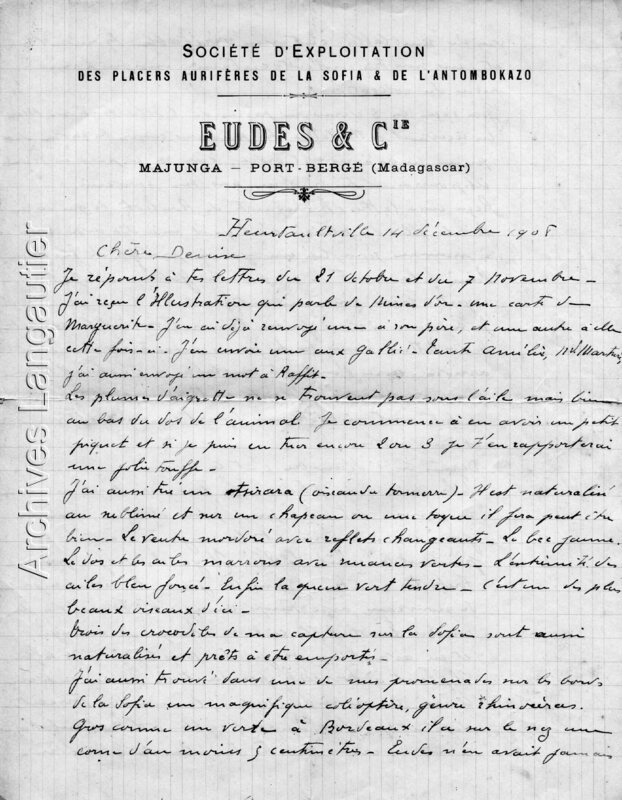 SOCIÉTÉ D'EXPLOITATION
DES PLACERS AURIFÈRES DE LA SOFIA & DE L'ANTOMBOKAZO
EUDES & CIE
MAJUNGA — PORT-BERGÉ (Madagascar)
Heurtaultville 14 décembre 1908
Chère Denise
Je réponds à tes lettres du 21 octobre et du 7 Novembre —
J'ai reçu l'Illustration qui parle de Mines d'or — une carte de
Marguerite — J'en ai déjà renvoyé une à son père, et une autre à elle
cette fois-ci. J'en envoie une aux — Tante Amélie,
j'ai aussi envoyé un mot à Raffit —
Les plumes d'aigrette ne se trouvent pas sous l'aile mais bien
au bas du dos de l'animal. Je commence à en avoir un petit
piquet et si je puis en tuer encore 2 ou 3 je t'en rapporterai
une jolie touffe —
J'ai aussi tué un (oiseau du tonnerre) — Il est naturalisé
au sublimé et sur un chapeau ou une toque il fera peut être
bien — Le ventre mordoré avec reflets changeants — Le bec jaune.
Le dos et les ailes marrons avec nuances vertes — L'extrémité des
ailes bleu foncé — Enfin la queue vert tendre — C'est un des plus
beaux oiseaux d'ici —
Trois des crocodiles de ma capture sur la Sofia sont aussi
naturalisés et prêts à être emportés —
J'ai aussi trouvé dans une de mes promenades sur les bords
de la Sofia un magnifique coléoptère, genre rhinocéros.
Gros comme un verre à Bordeaux il a sur le nez une
corne d'au moins 5 centimètres — Eudes n'en avait jamais
Archives Langautier